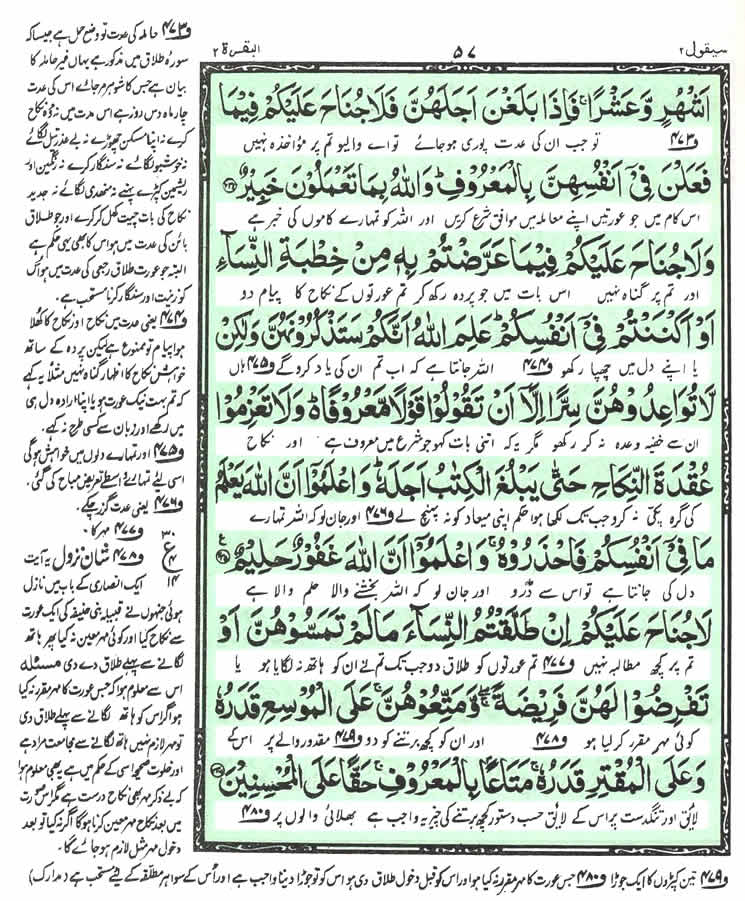 سیقول ۲
۵۷
البقرة ۲
اَشْهُرٍ وَّعَشْرًا ۚ فَاِذَا بَلَغْنَ اَجَلَهُنَّ فَلَا جُنَاحَ عَلَيْكُمْ فِيْمَا
ف۴۷۳ تو جب ان کی عدت پوری ہوجائے تو اے والیو تم پر مؤاخذہ نہیں
فَعَلْنَ فِيْۤ اَنْفُسِهِنَّ بِالْمَعْرُوْفِ ؕ وَاللّٰهُ بِمَا تَعْمَلُوْنَ خَبِيْرٌ ﴿۲۳۴﴾
اس کام میں جو عورتیں اپنے معاملہ میں موافق شرع کریں اور اللہ کو تمہارے کاموں کی خبر ہے
وَلَا جُنَاحَ عَلَيْكُمْ فِيْمَا عَرَّضْتُمْ بِهٖ مِنْ خِطْبَةِ النِّسَآءِ
اور تم پر گناہ نہیں اس بات میں جو پردہ رکھ کر تم عورتوں کے نکاح کا پیام دو
اَوْ اَكْنَنْتُمْ فِيْۤ اَنْفُسِكُمْ ؕ عَلِمَ اللّٰهُ اَنَّكُمْ سَتَذْكُرُوْنَهُنَّ وَلٰكِنْ
یا اپنے دل میں چھپا رکھو ف۴۷۴ اللہ جانتا ہے کہ اب تم ان کی یاد کرو گے ف۴۷۵ ہاں
لَّا تُوَاعِدُوْهُنَّ سِرًّا اِلَّاۤ اَنْ تَقُوْلُوْا قَوْلًا مَّعْرُوْفًا ؕ۬ وَلَا تَعْزِمُوْا
ان سے خفیہ وعدہ نہ کر رکھو مگر یہ کہ اتنی بات کہو جو شرع میں معروف ہے اور نکاح
عُقْدَةَ النِّكَاحِ حَتّٰى يَبْلُغَ الْكِتٰبُ اَجَلَهٗ ؕ وَاعْلَمُوْۤا اَنَّ اللّٰهَ يَعْلَمُ
کی گرہ پکی نہ کرو جب تک لکھا ہوا حکم اپنی میعاد کو نہ پہنچ لے ف۴۷۶ اور جان لو کہ اللہ تمہارے
مَا فِيْۤ اَنْفُسِكُمْ فَاحْذَرُوْهُ ۚ وَاعْلَمُوْۤا اَنَّ اللّٰهَ غَفُوْرٌ حَلِيْمٌ ﴿۲۳۵﴾
دل کی جانتا ہے تو اس سے ڈرو اور جان لو کہ اللہ بخشنے والا حلم والا ہے
لَا جُنَاحَ عَلَيْكُمْ اِنْ طَلَّقْتُمُ النِّسَآءَ مَا لَمْ تَمَسُّوْهُنَّ اَوْ
تم پر کچھ مطالبہ نہیں ف۴۷۷ تم عورتوں کو طلاق دو جب تک تم نے ان کو ہاتھ نہ لگایا ہو یا
تَفْرِضُوْا لَهُنَّ فَرِيْضَةً ۖۚ وَّمَتِّعُوْهُنَّ ۚ عَلَى الْمُوْسِعِ قَدَرُهٗ
کوئی مہر مقرر کرلیا ہو ف۴۷۸ اور ان کو کچھ برتنے کو دو ف۴۷۹ مقدور والے پر اس کے
وَعَلَى الْمُقْتِرِ قَدَرُهٗ ۚ مَتَاعًۢا بِالْمَعْرُوْفِ ۚ حَقًّا عَلَى الْمُحْسِنِيْنَ ﴿۲۳۶﴾
لائق اور تنگدست پر اس کے لائق حسب دستور کچھ برتنے کی چیز یہ واجب ہے بھلائی والوں پر ف۴۸۰
ف۴۷۳ حاملہ کی عدت تو وضع حمل ہے جیسا کہ
سورہ طلاق میں مذکور ہے یہاں غیر حاملہ کا
بیان ہے جس کا شوہر مرجائے اس کی عدت
چار ماہ دس روز ہے اس مدت میں نہ وہ نکاح
کرے نہ اپنا مسکن چھوڑے نہ بے عذر تیل لگائے
نہ خوشبو لگائے نہ سنگار کرے نہ رنگین اور
ریشمین کپڑے پہنے نہ مہندی لگائے نہ جدید
نکاح کی بات چیت کھل کر کرے اور جو طلاق
بائن کی عدت میں ہو اس کا بھی یہی حکم ہے
البتہ جو عورت طلاق رجعی کی عدت میں ہو اس
کو زینت اور سنگار کرنا مستحب ہے۔
ف۴۷۴ یعنی عدت میں نکاح اور نکاح کا کھلا
ہوا پیام تو ممنوع ہے لیکن پردہ کے ساتھ
خواہش نکاح کا اظہار گناہ نہیں مثلاً یہ کہے
کہ تم بہت نیک عورت ہو یا اپنا ارادہ دل ہی
میں رکھے اور زبان سے کسی طرح نہ کہے۔
ف۴۷۵ اور تمہارے دلوں میں خواہش ہوگی
اسی لئے تمہارے واسطے تعریض مباح کی گئی۔
ف۴۷۶ یعنی عدت گزر چکے۔
ف۴۷۷ مہر کا۔
۳۰
ع ۴
۱۴
ف۴۷۸ شان نزول یہ آیت
ایک انصاری کے باب میں نازل
ہوئی جنہوں نے قبیلہ بنی حنیفہ کی ایک عورت
سے نکاح کیا اور کوئی مہر معین نہ کیا پھر ہاتھ
لگانے سے پہلے طلاق دے دی مسئلہ
اس سے معلوم ہوا کہ جس عورت کا مہر مقرر نہ کیا
ہو اگر اس کو ہاتھ لگانے سے پہلے طلاق دی
تو مہر لازم نہیں ہاتھ لگانے سے مجامعت مراد ہے
اور خلوت صحیحہ اسی کے حکم میں ہے یہ بھی معلوم ہوا
کہ بے ذکر مہر بھی نکاح درست ہے مگر اس صورت
میں بعد نکاح مہر معین کرنا ہوگا اگر نہ کیا تو بعد
دخول مہر مثل لازم ہوجائے گا۔
ف۴۷۹ تین کپڑوں کا ایک جوڑا ف۴۸۰ جس عورت کا مہر مقرر نہ کیا ہو اور اس کو قبل دخول طلاق دی ہو اس کو تو جوڑا دینا واجب ہے اور اس کے سوا ہر مطلقہ کے لیے مستحب ہے (مدارک)